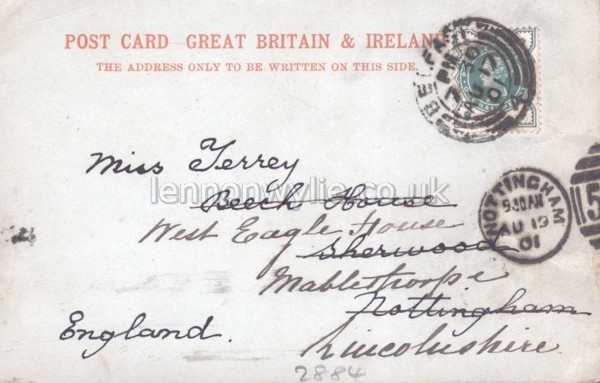 POST CARD - GREAT BRITAIN & IRELAND
THE ADDRESS ONLY TO BE WRITTEN ON THIS SIDE.
Miss Terrey
lennonwylie.co.uk
Beech House
West Eagle House
Sherwood
Mablethorpe
Nottingham
England.
Lincolnshire.
2884
NOTTINGHAM
9.30AM
AU 19
01
5